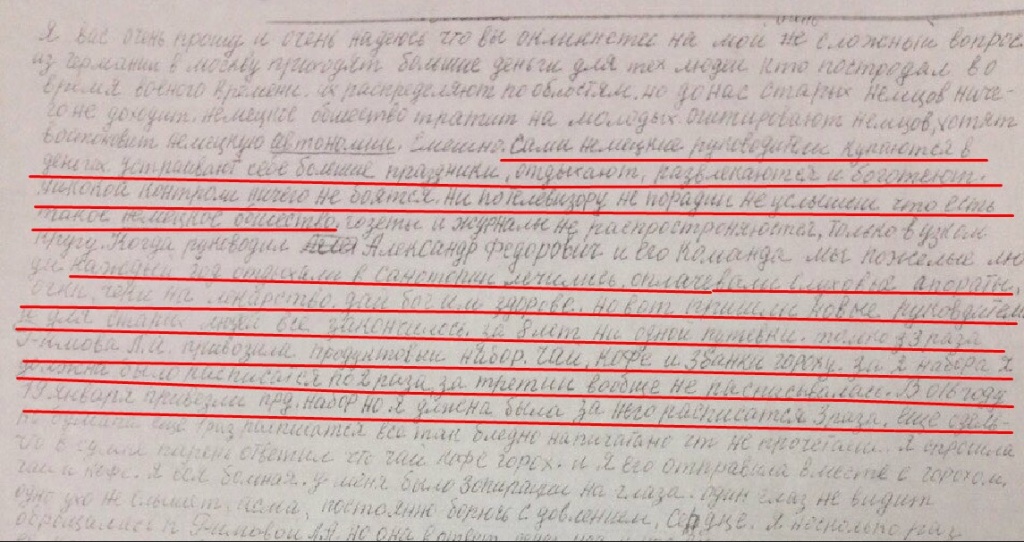 очень
Я вас очень прошу и очень надеюсь что вы откликнетесь на мой не сложный вопрос
из германии в москву приходят большие деньги для тех людей кто постродал во
время военого времени. их распределяют по облостям. но до нас старых немцов ниче-
го не доходит. немецкое общество тратит на молодых. огитировают немцов, хотят
востоновит немецкую автономию. Смешно. Сами немецкие руководители купаются в
деньгах. устраивают себе большие праздники, отдыхают, развлекаются и боготеют.
никокой контроли ничего не боятся. ни по телевизору не порадии не услышеш что есть
такое немецкое общество. газеты и журналы не распространяются, только в узком
кругу. Когда руководил Александр Федорович и его команда мы пожелые лю-
ди каждый год отдыхали в санотории лечились. оплачевали слуховые апораты,
очки, чеки на лекарство. дай бог им здорове. но вот пришли новые руководители
и для старых людей всё закончилось. за 8 лет ни одной путевки. толко 3 раза
Л.А. привозила продуктовый набор. чаи, кофе и 3 банки гороху. за 2 набора я
должна было расписатся по 2 раза, за третий вообще не расписывалась. В 016 году
19 Января привезли прд. набор но я должна была за него расписатся 3 раза. еще
по бумаги еще 1 раз расписатся все так бледно напичатано что не прочетаеш. я спросила
что в сумке парень ответил что чаи кофе горох. и я его отправила вместе с горохом,
чаи и кофе. Я вся болная. у меня было 3 операции на глаза. один глаз не видит
одно ухо не слышит. асма, постоянно борюсь с довлением, Сердце. Я несколько раз
обращалась к Л.А. но она